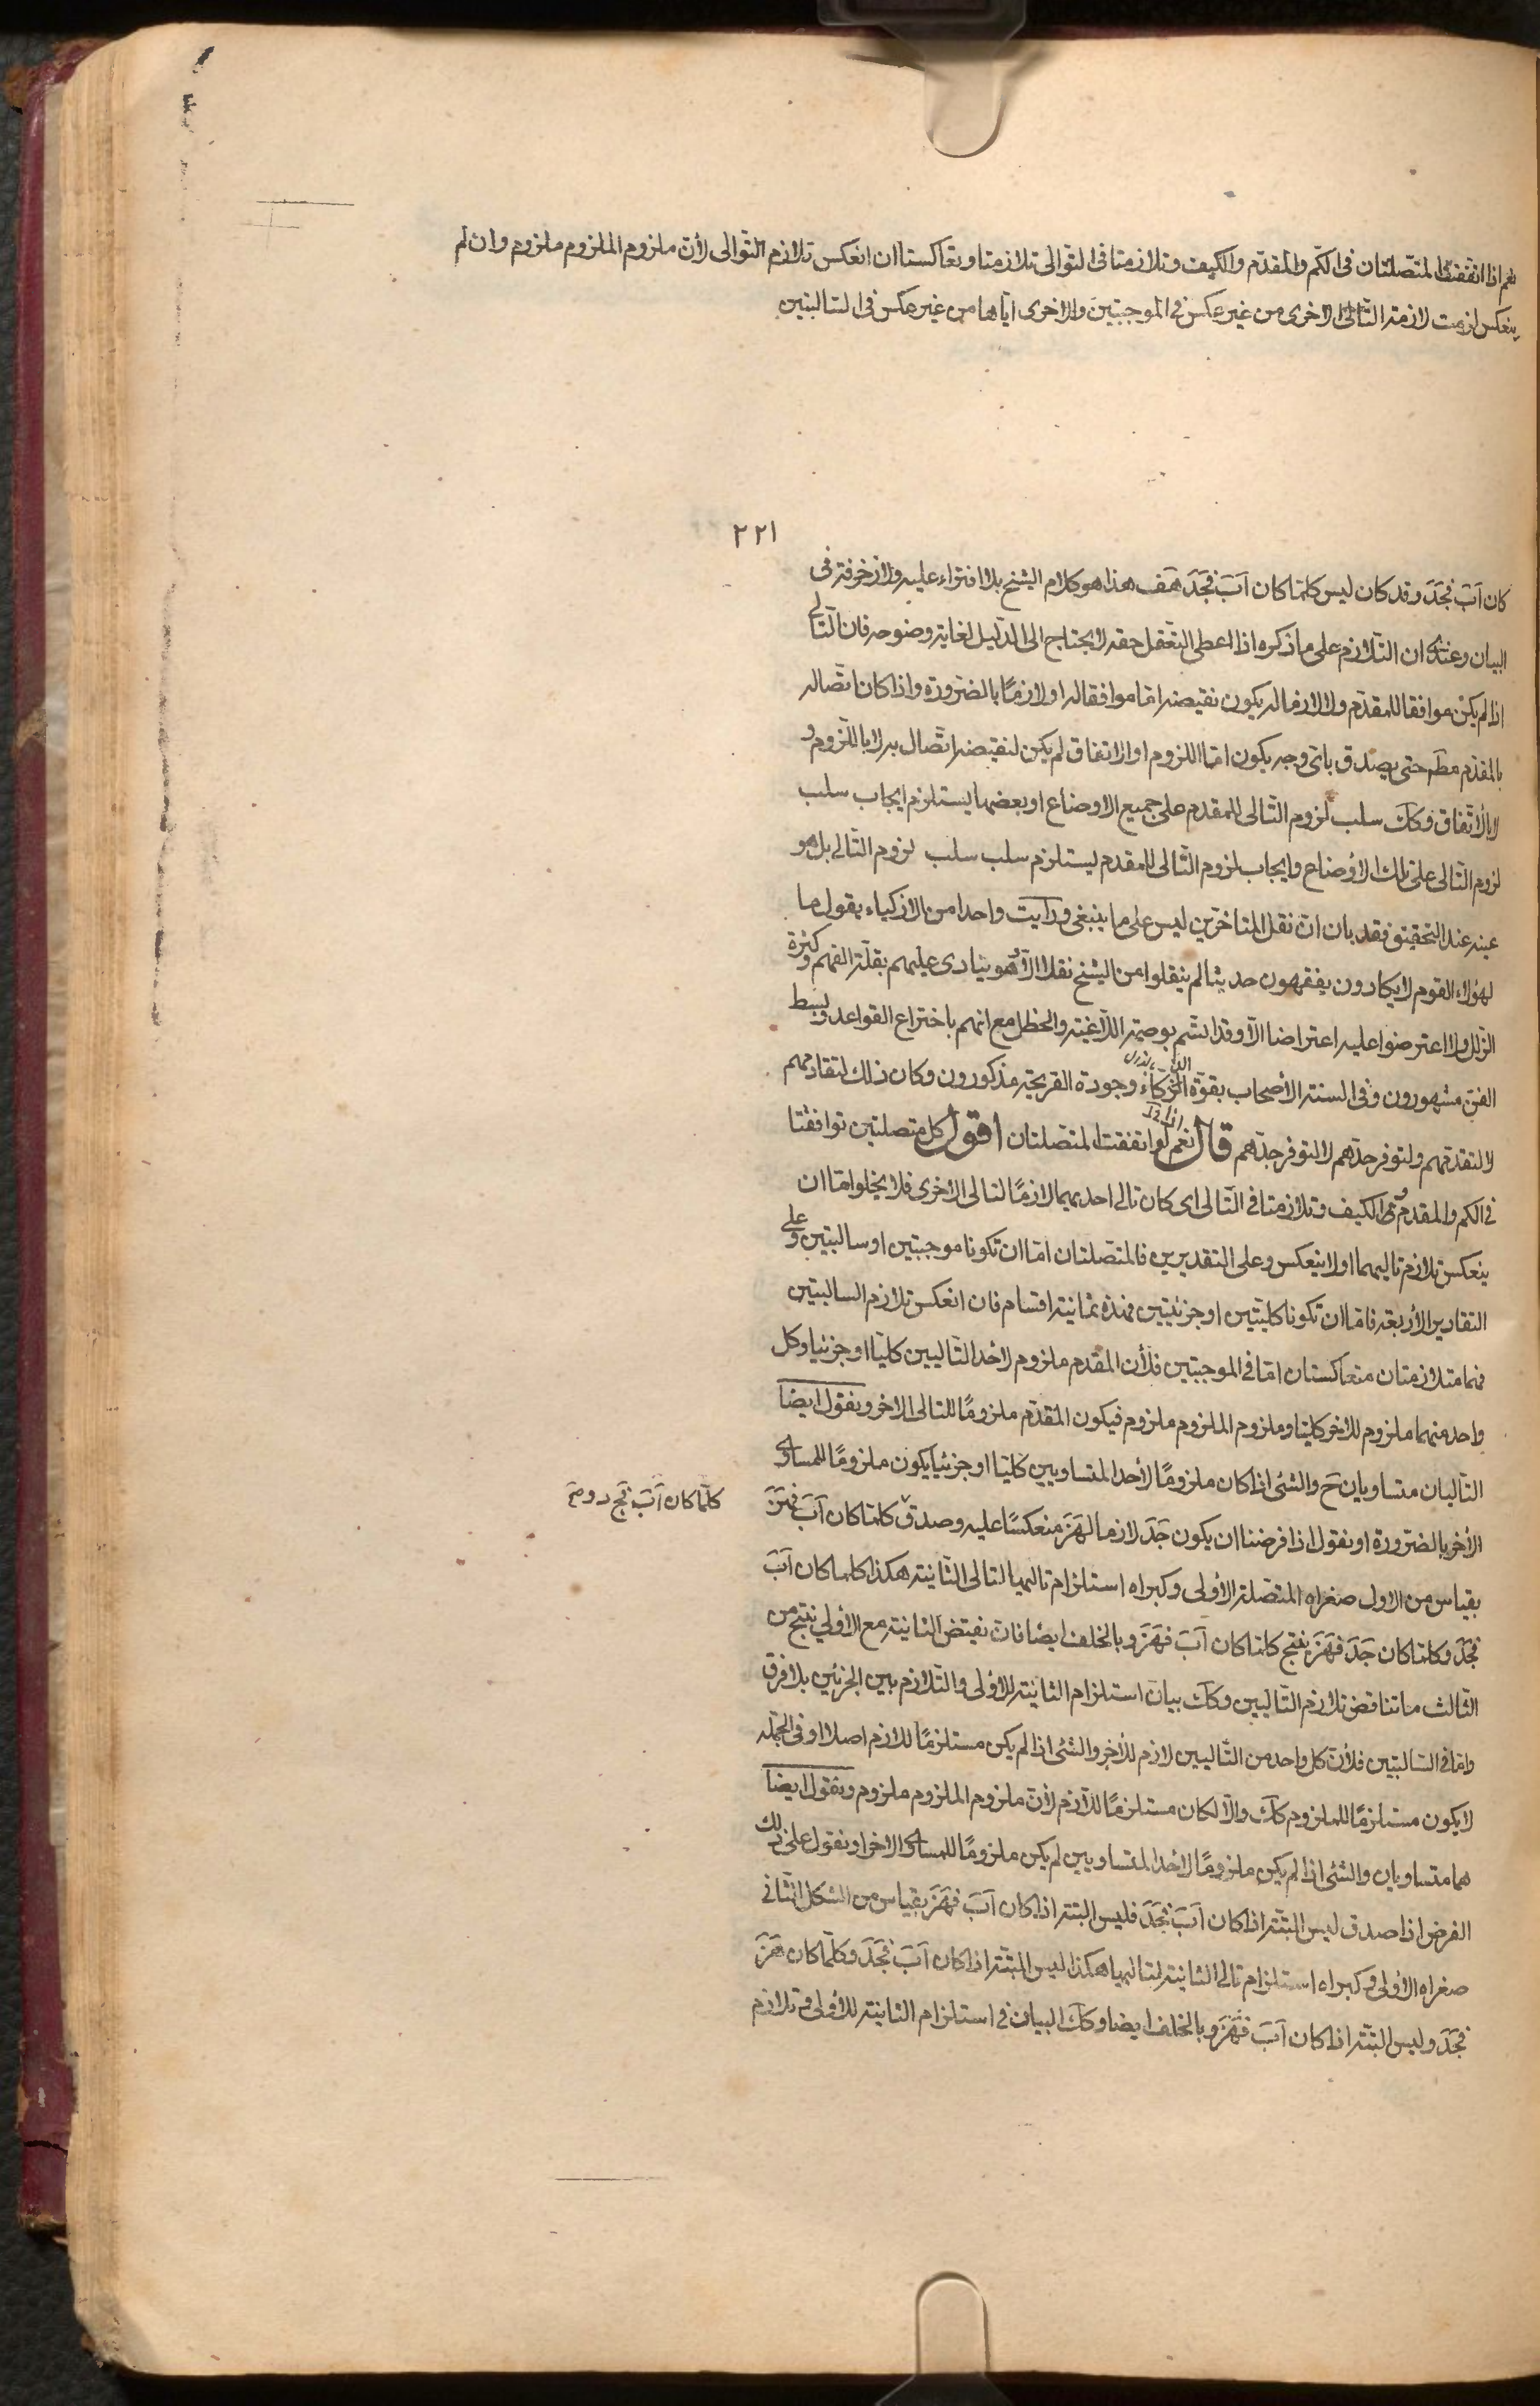 نعم اذا اتفقت المتصلتان فى الكمّ والمقدّم والكيف وتلازمتا فى التوالى تلازمتا وتعاكستا ان انعكس تلازم التّوالى لأن ملزوم الملزوم ملزوم وان لم
ينعكس لزمت لازمة التّالى الاخرى من غير عكس فى الموجبتين والاخرى اياها من غير عكس فى السّالبتين
٢٢١
كان اَبَ فجَدَ وقد كان ليس كلّما كان اَبَ فجَدَ هَف هذا هو كلام الشيخ بلا افتراء عليه ولا زخرفة فى
البيان وعندى ان التّلازم على ما ذكره اذا اعطى التّعقل حقه لا يحتاج الى الدّليل لغاية وضوحه فان التّالى
اذا لم يكن موافقا للمقدّم ولا لازما له يكون نقيضه امّا موافقا له او لازمًا بالضّرورة واذا كان اتّصاله
بالمقدّم مطَ حتى يصدق باىّ وجه يكون امّا اللزوم او الاتفاق لم يكن لنقيضه اتّصال به لا باللّزوم و
لا بالأتّفاق وكَك سلب لزوم التّالى للمقدم على جميع الاوضاع او بعضها يستلزم ايجاب سلب
لزوم التّالى على تلك الأوضاع وايجاب لزوم التّالى للمقدم يستلزم سلب سلب لزوم التّالى بل هو
عينه عند التحقيق فقد بان انّ نقل المتاخّرين ليس على ما ينبغى ورأيت واحدا من الازكياء يقول ما
لهؤلاء القوم لا يكادون يفقهون حديثا لم ينقلوا من الشيخ نقلا الّا وهو ينادى عليهم بقلّة الفهم وكثرة
الزّلل ولا اعترضوا عليه اعتراضا الّا وقد اتّسم بوصمة اللّاغية والخطل مع انهم باختراع القواعد وبسط
الفنّ مشهورون وفى السنة الأصحاب بقوّة الزّكاء وجودة القريحة مذكورون وكان ذلك لتقادمهم
لا لتقدّمهم ولتوفر جدّهم لا لتوفر جدّهم قال نعم لو اتفقت المتصلتان اقول كل متصلتين توافقتا
فى الكم والمقدّم و الكيف وتلازمتا فى التّالى اى كان تالى احديهما لازمًا لتالى الاخرى فلا يخلوا امّا ان
ينعكس تلازم تاليهما او لا ينعكس وعلى التقديرين فالمتصلتان امّا ان تكونا موجبتين او سالبتين وعلى
التقادير الأربعة فامّا ان تكونا كليّتين او جزئيتين فهذه ثمانية اقسام فان انعكس تلازم السالبتين
فهما متلازمتان متعاكستان امّا فى الموجبتين فلأن المقدم ملزوم لاحد التّاليين كليّا او جزئيا وكل
واحد منهما ملزوم للاخر كليّا وملزوم الملزوم ملزوم فيكون المقدّم ملزومًا للتالى الاخر ونقول ايضا
التّاليان متساويان حَ والشئ اذا كان ملزومًا لأحد المتساويين كليّا او جزئيّا يكون ملزومًا للمساوى
الأخر بالضّرورة او نقول اذا فرضنا ان يكون جَدَ لازما لهَزَ منعكسًا عليه وصدق كلما كان اَبَ فهَزَ
كلّما كان اَبَ فج د
بقياس من الاول صغراه المتّصلة الأولى وكبراه استلزام تاليها لتالى الثّانية هكذا كلما كان اَبَ
فجَدَ وكلما كان جَدَ فهَزَ ينتج كلما كان اَبَ فهَزَ وبالخلف ايضا فان نقيض الثانية مع الاولى ينتج من
الثّالث ما تناقض تلازم التّاليين وكَك بيان استلزام الثانية للاولى والتّلازم بين الجزئين بلا فرق
وامّا فى السّالبتين فلأن كل واحد من التّاليين لازم للأخر والشئ اذا لم يكن مستلزمًا للازم اصلا او فى الجملة
لا يكون مستلزمًا للملزوم كَك والّا لكان مستلزمًا للّازم لأن ملزوم الملزوم ملزوم ونقول ايضا
هما متساويان والشئ اذا لم يكن ملزومًا لاحد المتساويين لم يكن ملزومًا للمساوى الاخر او نقول على ذلك
الفرض اذا صدق ليس البتّة اذا كان اَبَ فجَدَ فليس البتة اذا كان اَبَ فهَزَ بقياس من الشكل الثّانى
صغراه الأولى وكبراه استلزام تالى الثانية لتاليها هكذا ليس البتّة اذا كان اَبَ فجَدَ وكلّما كان هَزَ
فجَدَ وليس البتّة اذا كان اَبَ فهَزَ وبالخلف ايضا وكَك البيان فى استلزام الثانية للأولى وتلازم